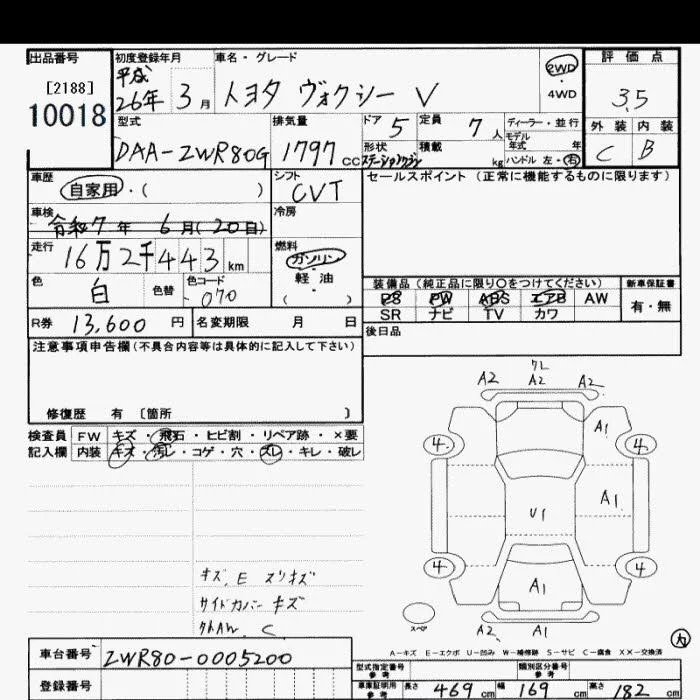 出品番号
[2188]
10018
初度登録年月
平成
26年 3月
車名・グレード
トヨタ ヴォクシー V
2WD
・
4WD
評価点
3.5
外装 内装
C B
型式
DAA-ZWR80G
排気量
1797 cc
ドア 5
定員 7人
形状
ステーションワゴン
積載 kg
ディーラー・並行
モデル
年式 年
ハンドル 左・右
車歴
自家用・( )
シフト
CVT
セールスポイント (正常に機能するものに限ります)
車検
令和7年 6月(20日)
冷房
走行
16万2千443km
燃料
ガソリン
軽・油
( )
色
白
色替
色コード
070
装備品 (純正品に限り○をつけてください)
PS PW ABS エアB AW
SR ナビ TV カワ
新車保証書
有・無
R券 13,600円
名変期限 月 日
後日品
注意事項申告欄 (不具合内容等は具体的に記入して下さい)
修復歴 有 〔箇所 〕
検査員
記入欄
FW キズ・飛石・ヒビ割・リペア跡・×要
内装 キズ・汚レ・コゲ・穴・ズレ・キレ・破レ
クレ
A2 A2 A2
A1
4 4
A1
U1
4 4
A1
スペア
A2 A1
内
キズ、E スリキズ
サイドカバー キズ
A－キズ E－エクボ U－凹み W－補修跡 S－サビ C－腐食 X X－交換済
車台番号
ZWR80-0005200
登録番号
型式指定番号
参考
類別区分番号
参考
車庫証明用
参考
長さ 469 cm
幅 169 cm
高さ 182 cm